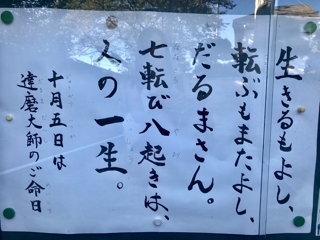 生きるもよし、
転ぶもまたよし、
だるまさん。
七転び八起きは、
人の一生。
十月五日は
達磨大師のご命日